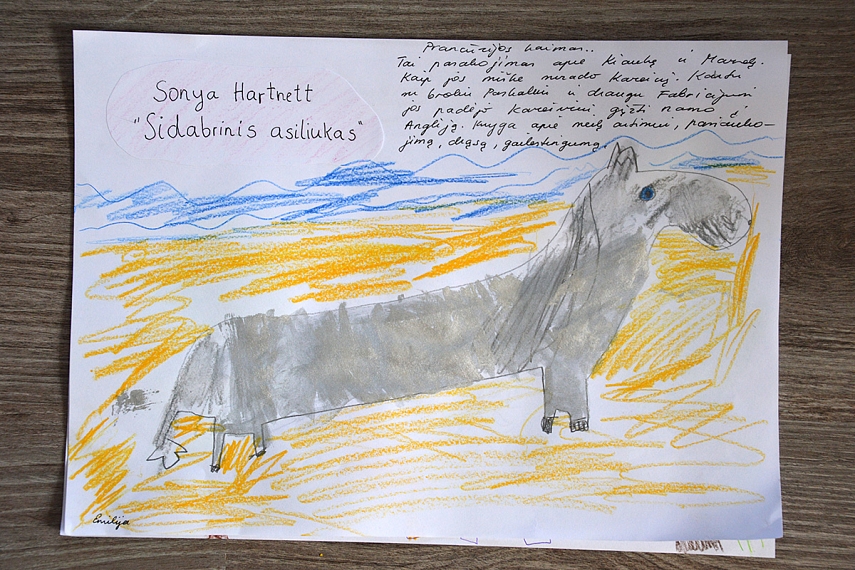 Sonya Hartnett
"Sidabrinis asiliukas"
Prancūzijos kaimas..
Tai pasakojimas apie Kiaukę ir Marselę.
Kaip jos miške surado kareivį. Kartu
su broliu Paskaliu ir draugu Fabricijumi
jos padėjo kareiviui grįžti namo į
Angliją. Knyga apie meilę artimui, pasiauko-
jimą, drąsą, gailestingumą.
Emilija